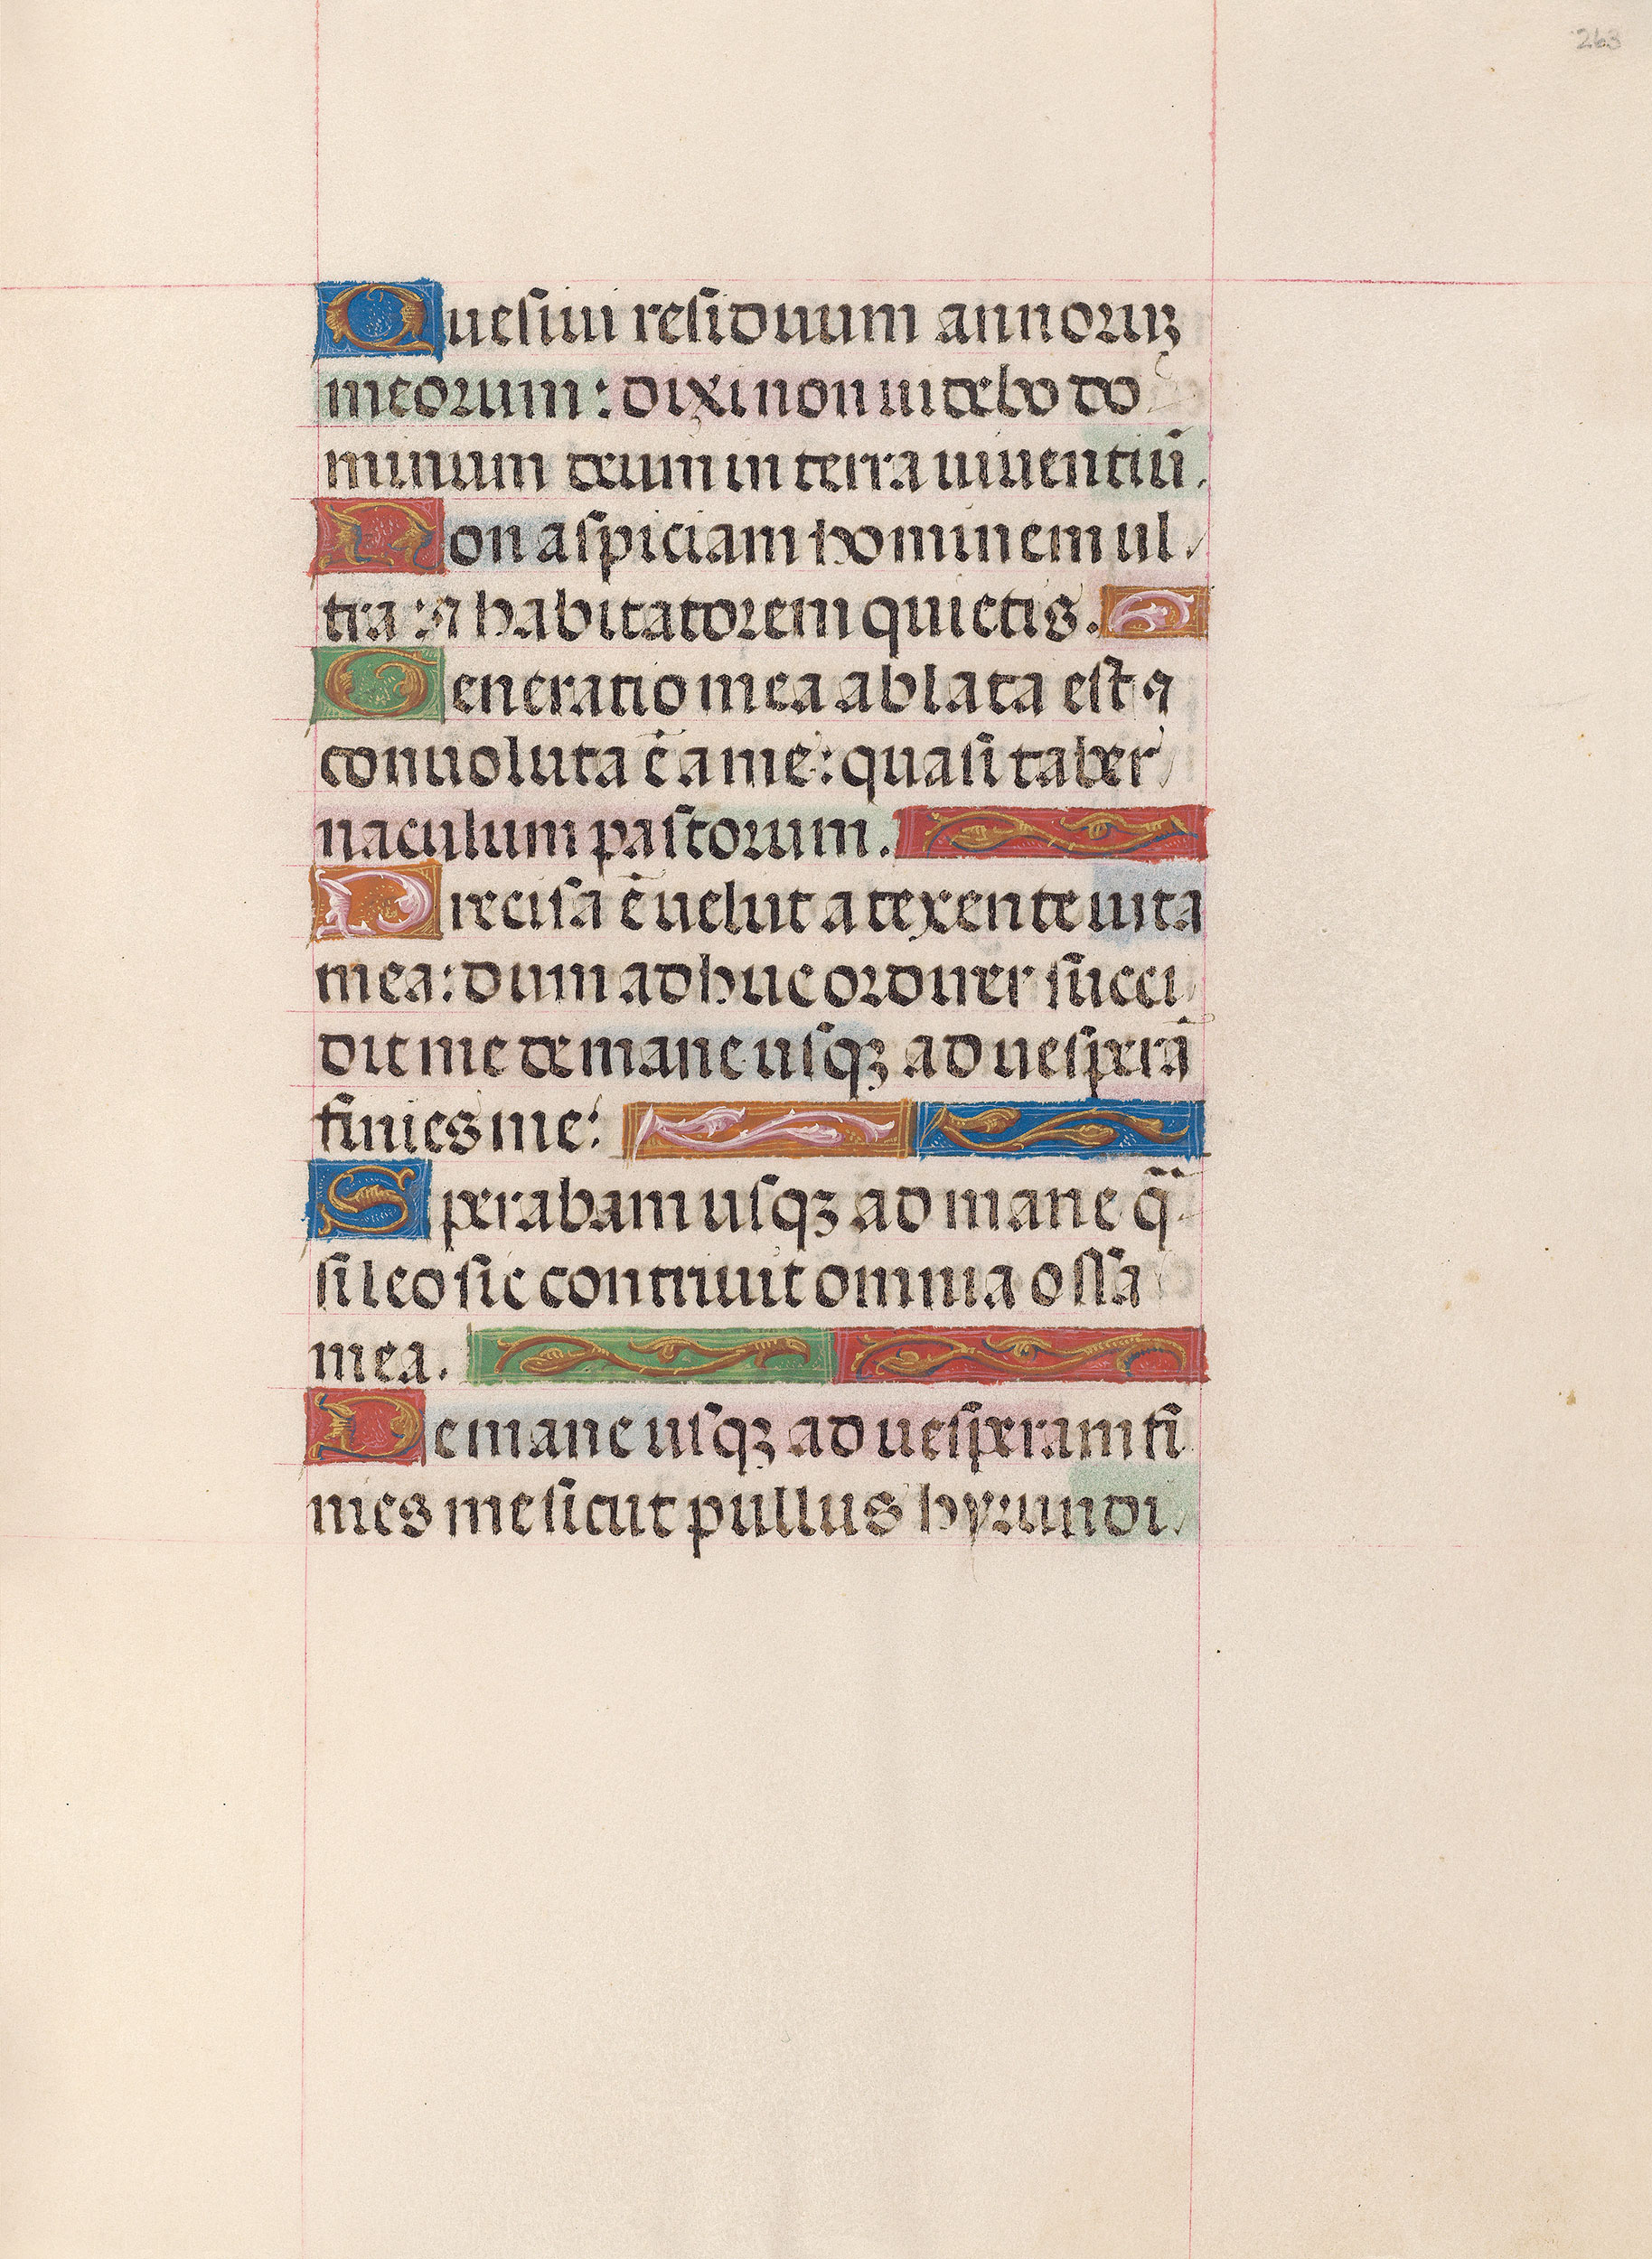 263
Quesiui residuum annoruꝫ
meorum: dixi non uidebo do
minum deum in terra uiuentiū.
Non aspiciam hominem ul
tra: ⁊ habitatorem quietis.
Generatio mea ablata est ⁊
conuoluta ē a me: quasi taber
naculum pastorum.
Precisa ē uelut a texente uita
mea: dum adhuc ordirer succi
dit me de mane usqꝫ ad uesperā
finies me:
Sperabam usqꝫ ad mane q̄
si leo sic contriuit omnia ossa
mea.
De mane usqꝫ ad uesperam fi
nies me sicut pullus hyrundi